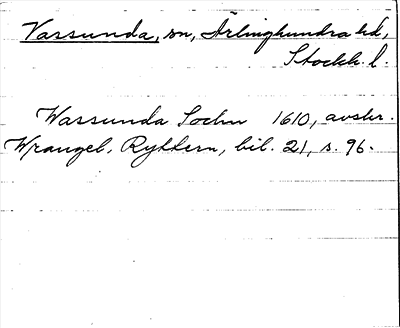 Vassunda, sn, Ärlinghundra hd,
Stockh. l.
Wassunda Sochn 1610, avskr.
Wrangel, Ryttern, bil. 21, s. 96.